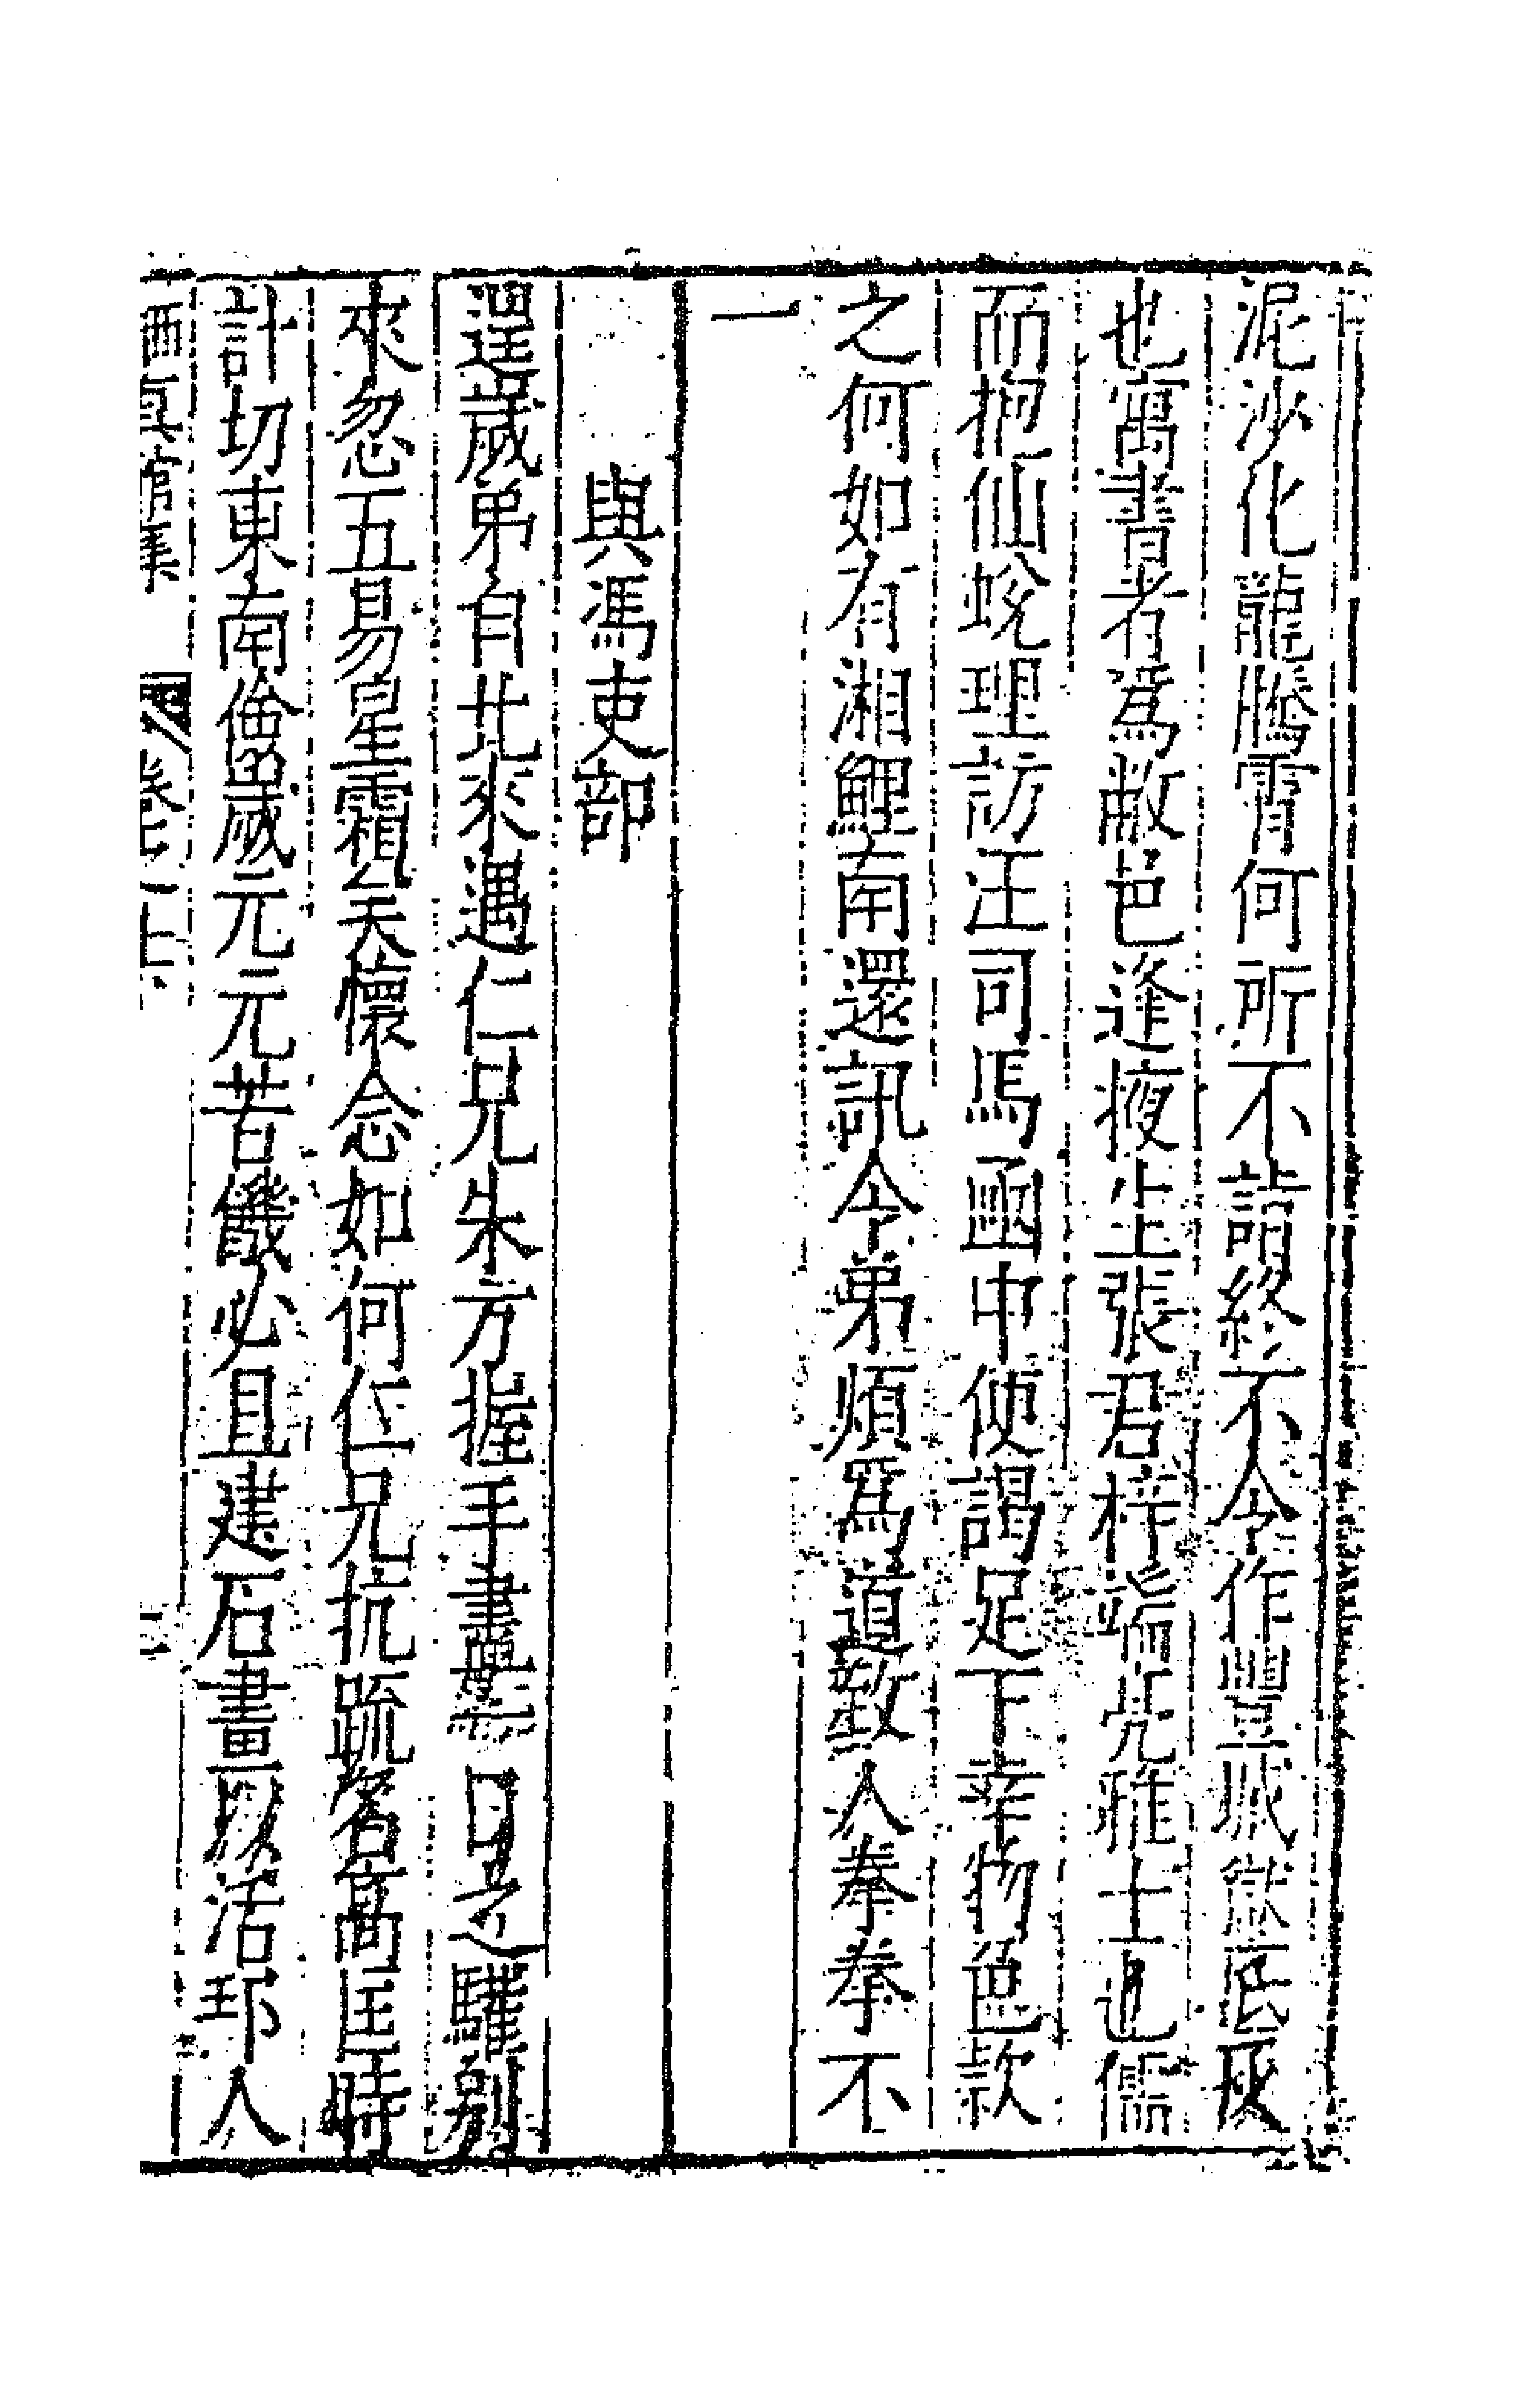 泥沙化龍騰霄何所不詣終不令作豐城獄底灰
也寓書者爲敝邑逢掖生張君梓端亮雅士也儒
而抱仙蛻理訪汪司馬函中使謁足下幸物色款
之何如有湘鯉南還訊令弟煩爲道致人拳拳不
一
與馮吏部
遑歲弟自北來遇仁兄朱方握手晝 日之驩別
來忽五易星霜矣懷念如何仁兄抗疏名高匡時
計切東南儉歲元元苦饑必且建石畫以活邦人
栖真館集 卷之一